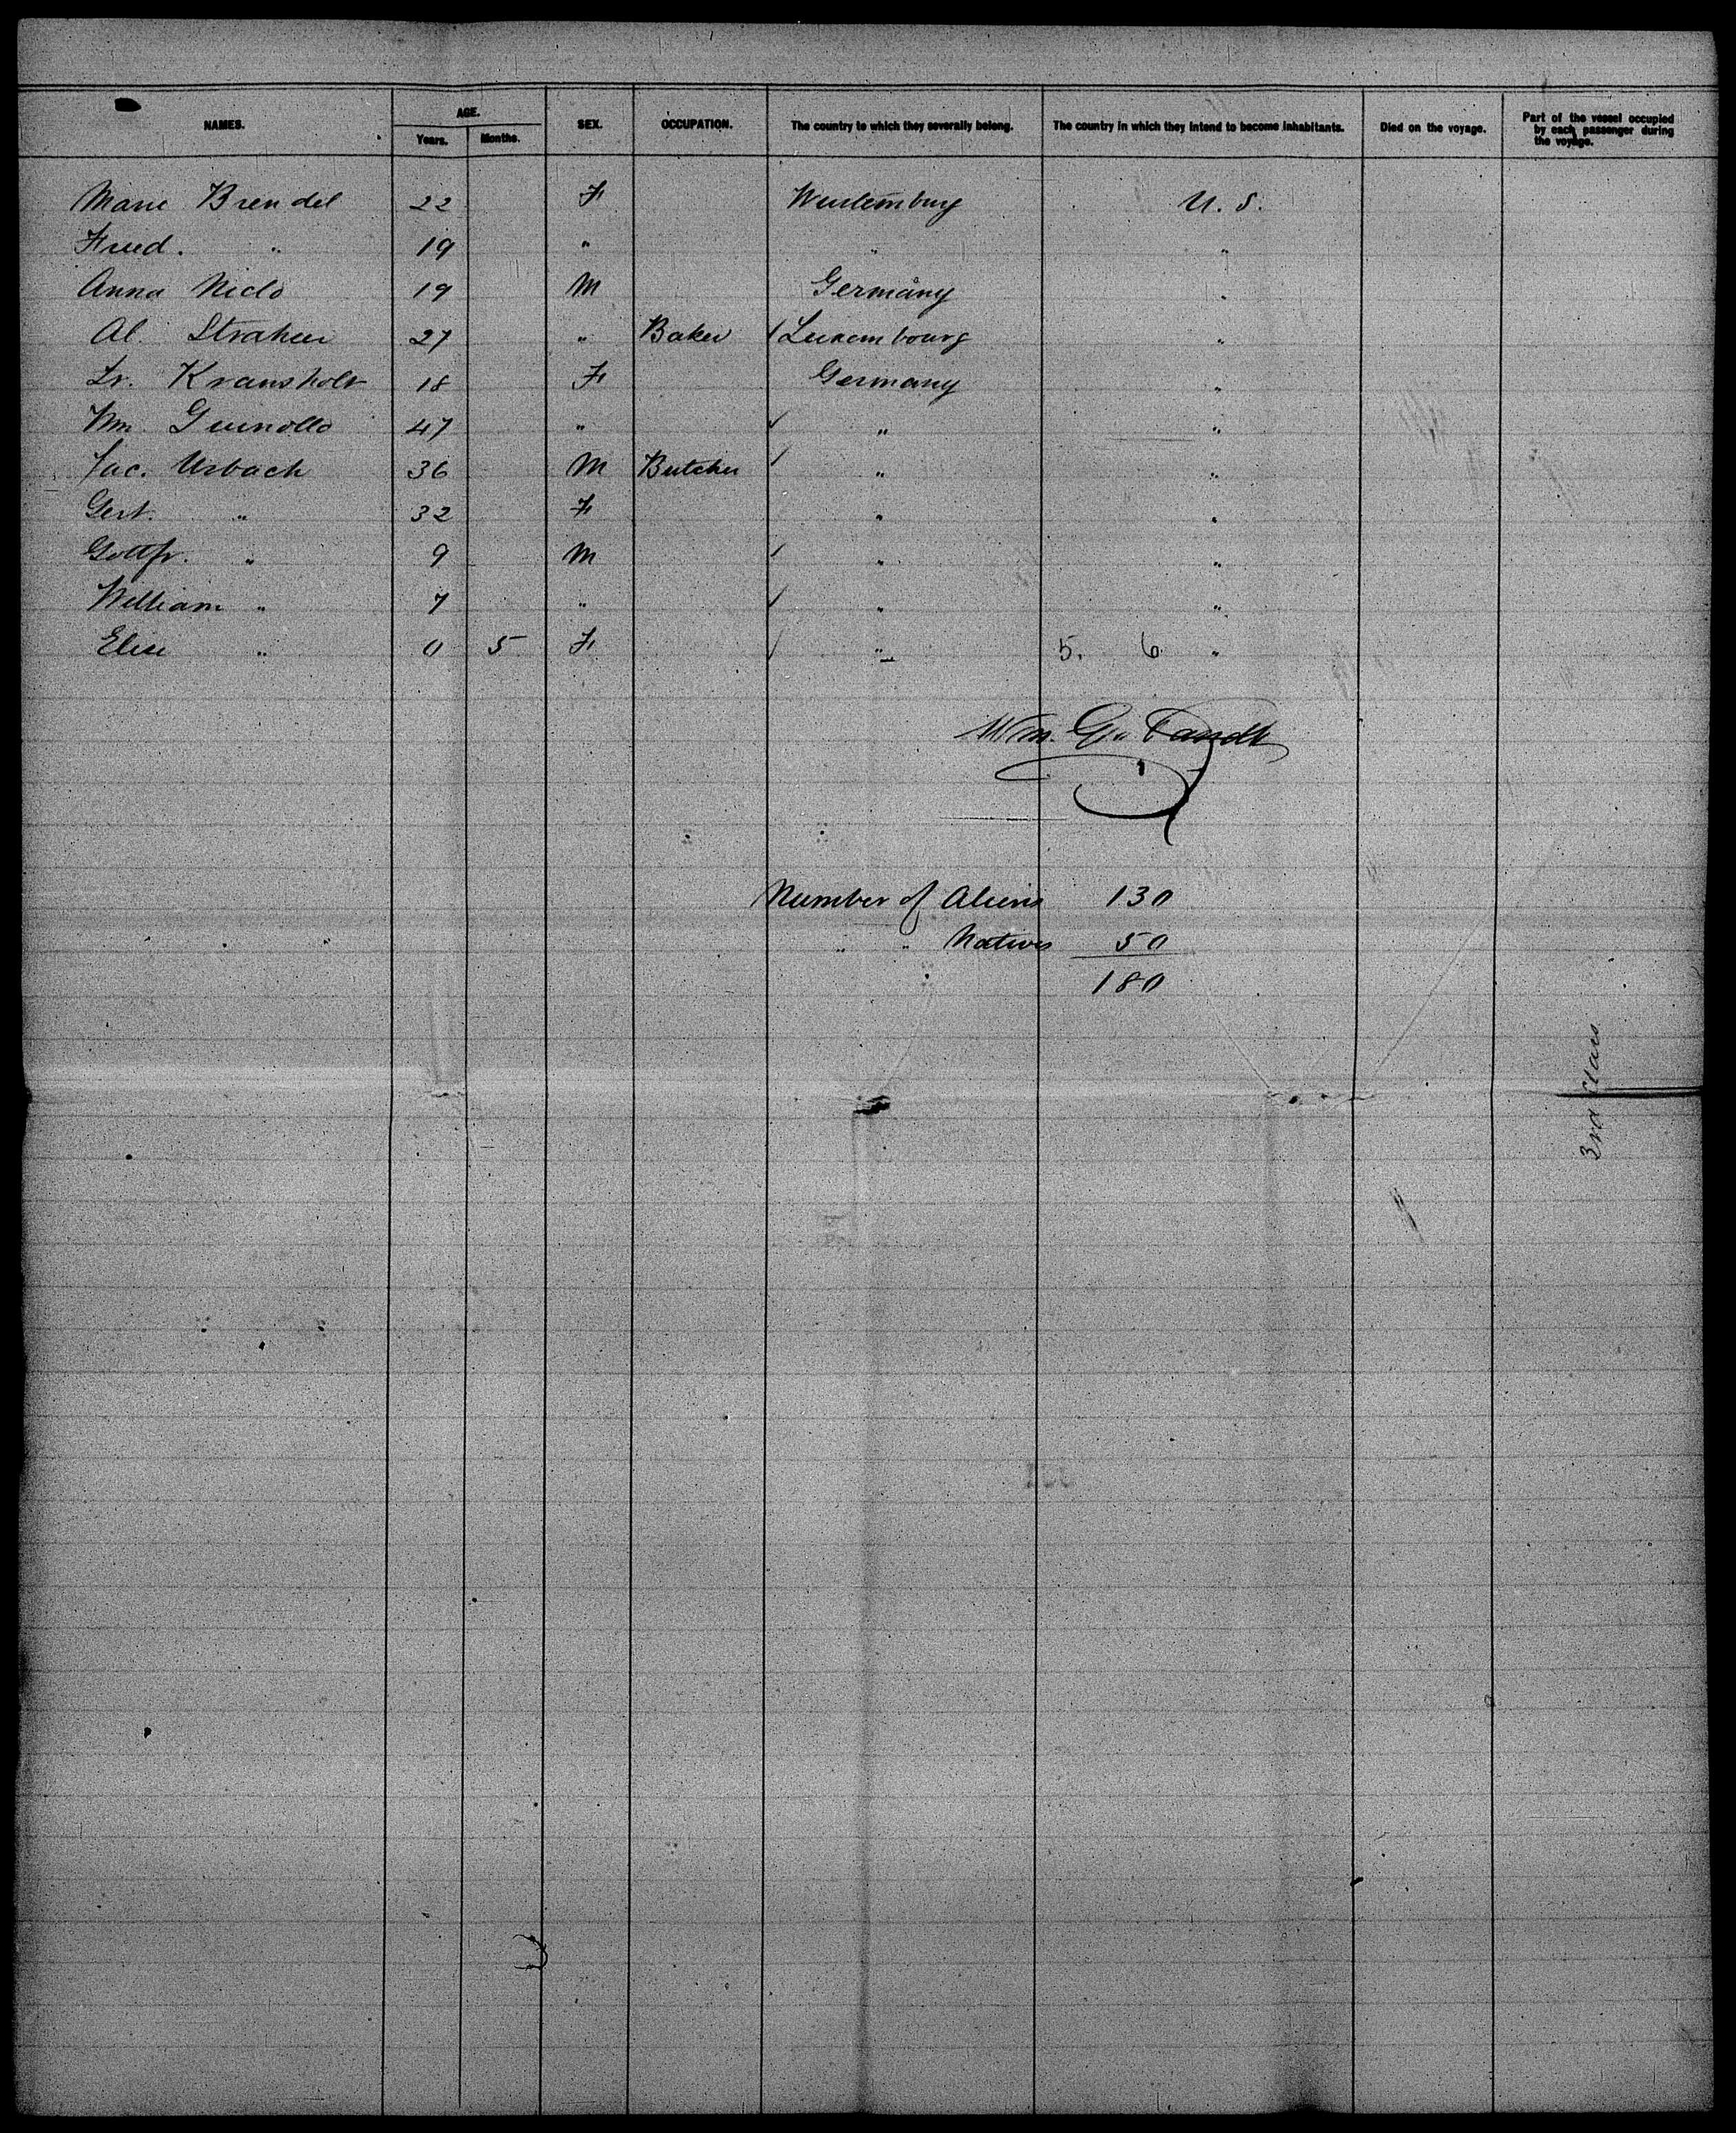 NAMES. AGE. Years. Months. SEX. OCCUPATION. The country to which they severally belong. The country in which they intend to become inhabitants. Died on the voyage. Part of the vessel occupied by each passenger during the voyage.
Marie Brendel 22 F Wurtemburg U. S.
Fried. " 19 " " "
Anna Niclo 19 M Germany "
Al. 27 " Baker Luxembourg "
Kransholt 18 F Germany "
Wm. 47 " " "
Jac. Urbach 36 M Butcher " "
Gert. " 32 F " "
Gottfr. " 9 M " "
William " 7 " " "
Elise " 0 5 F " 5. 6 "
Wm. G.
Number of Aliens 130
" " Natives 50
180
3rd Class